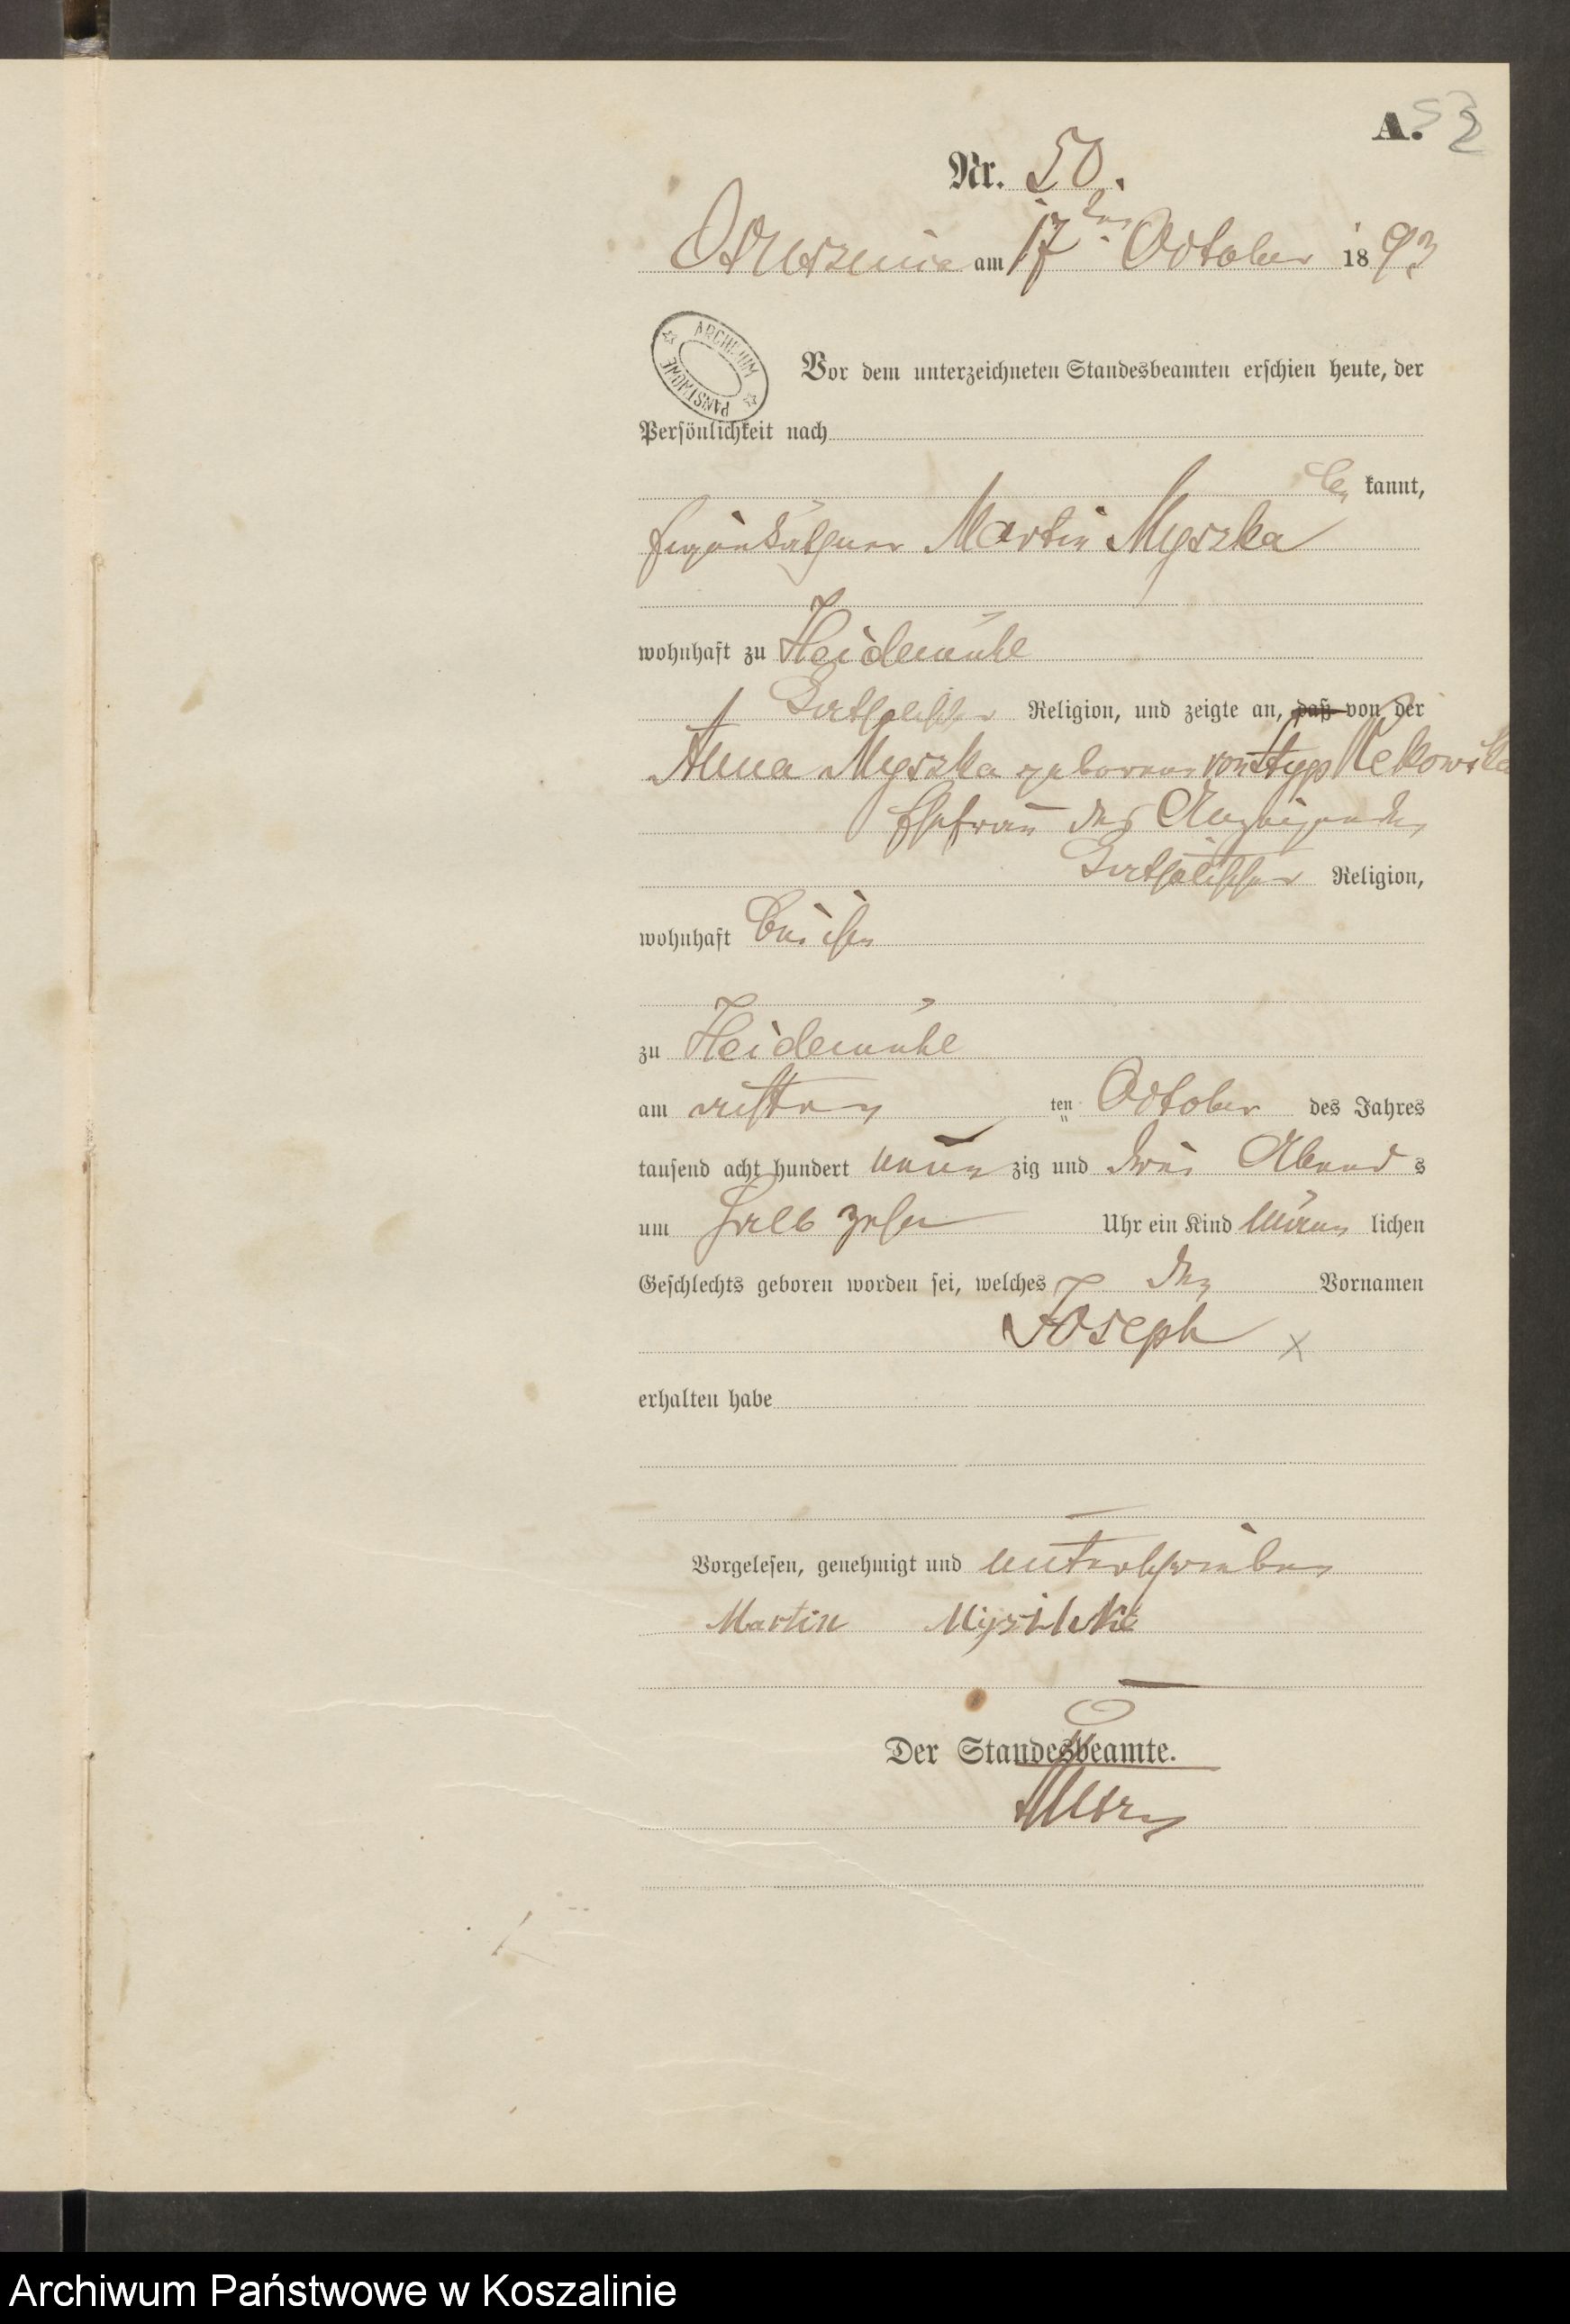 A. 52
Nr. 50.
am 17ten October 1893
ARCHIWUM PAŃSTWOWE
Vor dem unterzeichneten Standesbeamten erschien heute, der
Persönlichkeit nach
be kannt,
Eigenkäthner Martin Myszka
wohnhaft zu Heidemühl
katholischer Religion, und zeigte an, daß von der
Anna Myszka geborene von Styp Rekowska
Ehefrau des Anzeigenden
katholischer Religion,
wohnhaft bei ihm
zu Heidemühl
am achten ten October des Jahres
tausend acht hundert neun zig und drei Abend s
um halb zehn Uhr ein Kind männ lichen
Geschlechts geboren worden sei, welches den Vornamen
Joseph x
erhalten habe
Vorgelesen, genehmigt und unterschrieben
Martin
Der Standesbeamte.
Archiwum Państwowe w Koszalinie